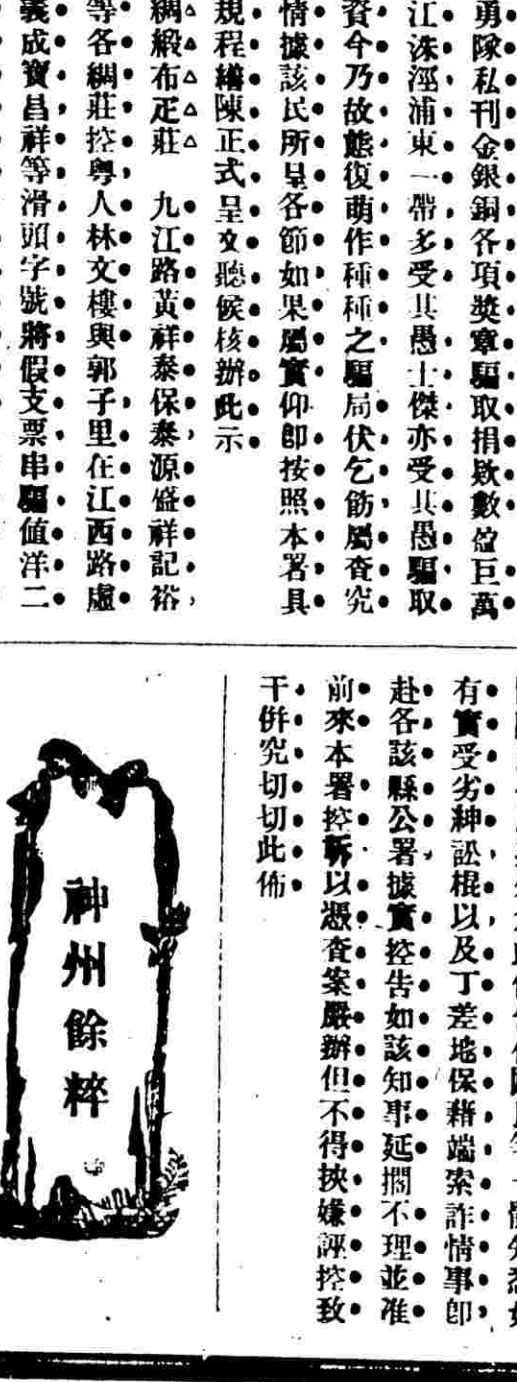 勇隊私刊金銀銅各項獎章騙取捐欵數盈巨萬
江洙涇浦東一帶多受其愚士傑亦受其愚騙取
資今乃故態復萌作種種之騙局伏乞飭屬查究
情據該民所呈各節如果屬實仰卽按照本署具
規程繕陳正式呈文聽候核辦此示
綢緞布疋莊　九江路黃祥泰保泰源盛祥記裕
等各綢莊控粤人林文樓與郭子里在江西路虛
義成寶昌祥等滑頭字號將假支票串騙値洋二
有實受劣紳訟棍以及丁差地保藉端索詐情事卽
赴各該縣公署據實控告如該知事延擱不理並准
前來本署控訴以憑查案嚴辦但不得挾嫌誣控致
干併究切切此佈
神州餘粹